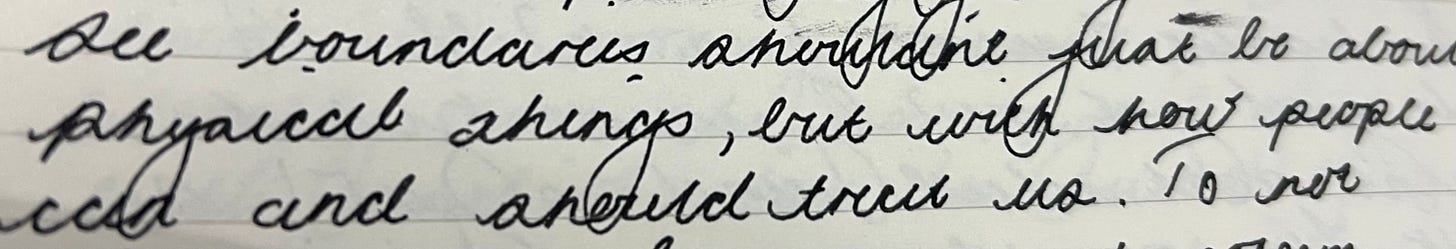 See boundares shouldnt just be about
physical things, but with how people
can and should treat us. To not